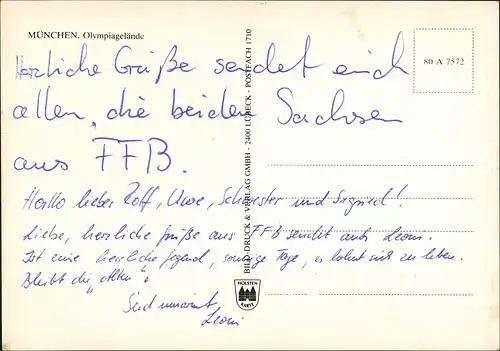 MÜNCHEN, Olympiagelände
80 A 7572
Herzliche Grüße sendet euch
allen, die beiden Sachsen
aus FFB.
Hallo lieber Rolf, Uwe, Schwester und Sigrid!
Liebe, herzliche Grüße aus FFB sendet auch Leoni.
Ist eine herrliche Gegend, sonnige Tage, es lohnt sich zu leben.
Bleibt die „Alten“!
Seid umarmt
Leoni
BILD DRUCK & VERLAG GMBH - 2400 LÜBECK - POSTFACH 1710
HOLSTEN
KARTE